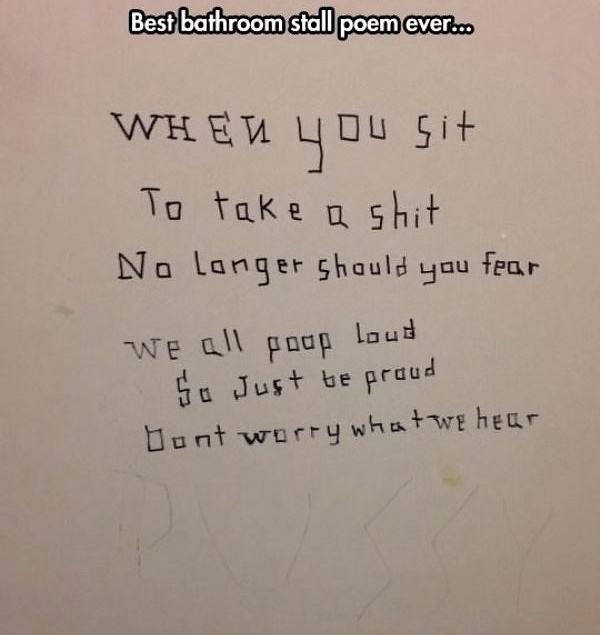 Best bathroom stall poem ever...
WHEN you sit
To take a shit
No Longer should you fear
WE all poop loud
So Just be proud
Dont worry what WE hear
PUSSY